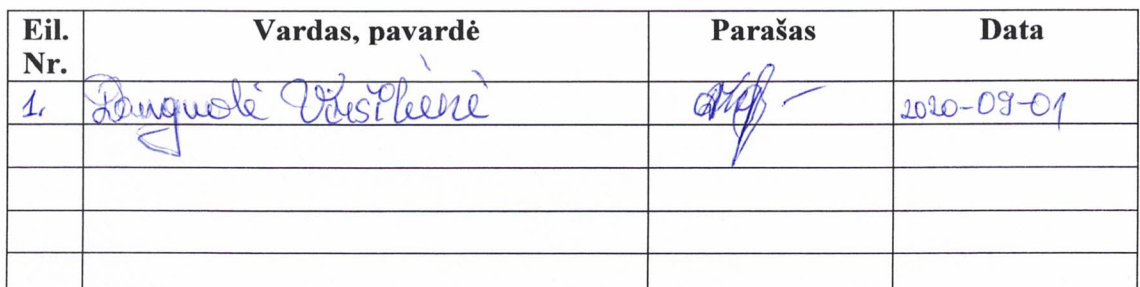 Eil. Nr. Vardas, pavardė Parašas Data
1. Danguolė 2020-09-01